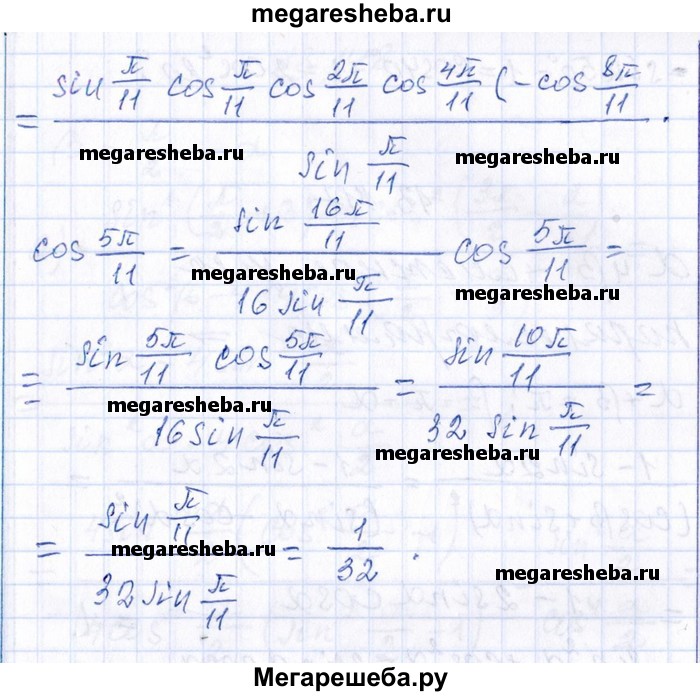 megaresheba.ru
= (sin π/11 cos π/11 cos 2π/11 cos 4π/11 (-cos 8π/11) / (sin π/11) .
megaresheba.ru megaresheba.ru
cos 5π/11 = (sin 16π/11) / (16 sin π/11) cos 5π/11 =
megaresheba.ru megaresheba.ru
= (sin 5π/11 cos 5π/11) / (16 sin π/11) = (sin 10π/11) / (32 sin π/11) =
megaresheba.ru megaresheba.ru
= (sin π/11) / (32 sin π/11) = 1/32 .
megaresheba.ru megaresheba.ru
Мегарешеба.ру